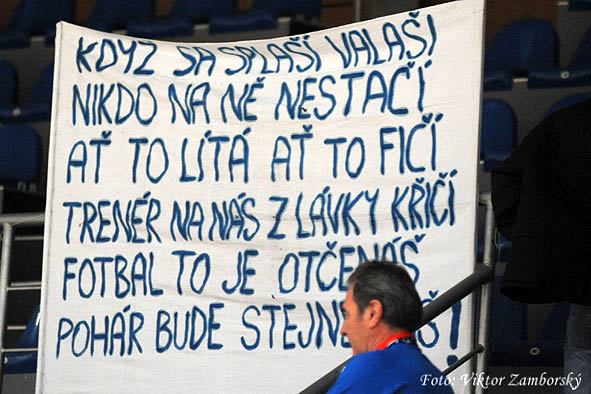 KDYŽ SA SPLAŠÍ VALAŠI
NIKDO NA NĚ NESTAČÍ
AŤ TO LÍTÁ AŤ TO FIČÍ
TRENÉR NA NÁS Z LÁVKY KŘIČÍ
FOTBAL TO JE OTČENÁŠ
POHÁR BUDE STEJNE Š!
Foto: Viktor Zamborský